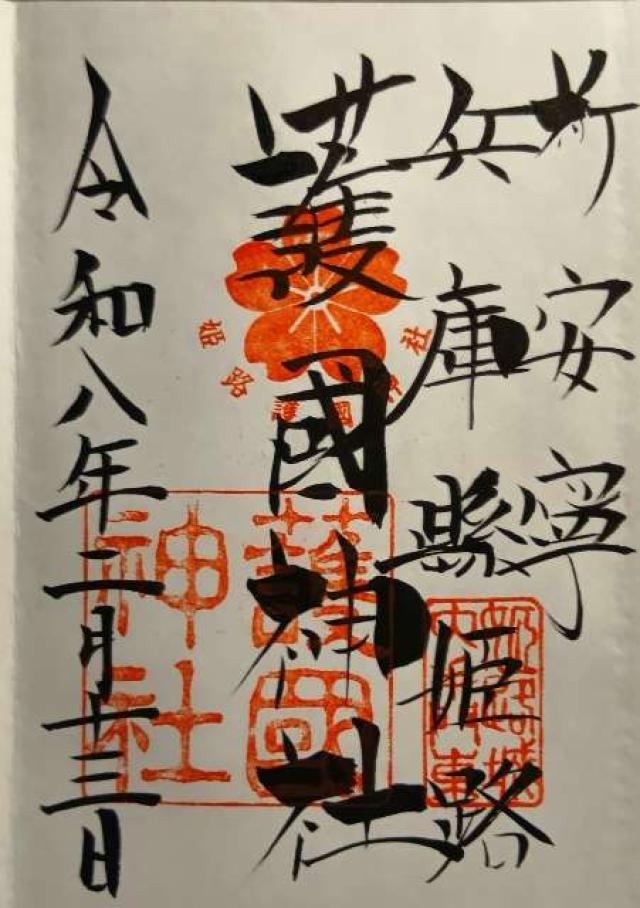 祈安寧
兵庫縣姫路
護國神社
令和八年二月十三日
姫路護國神社
護國
神社
姫路城